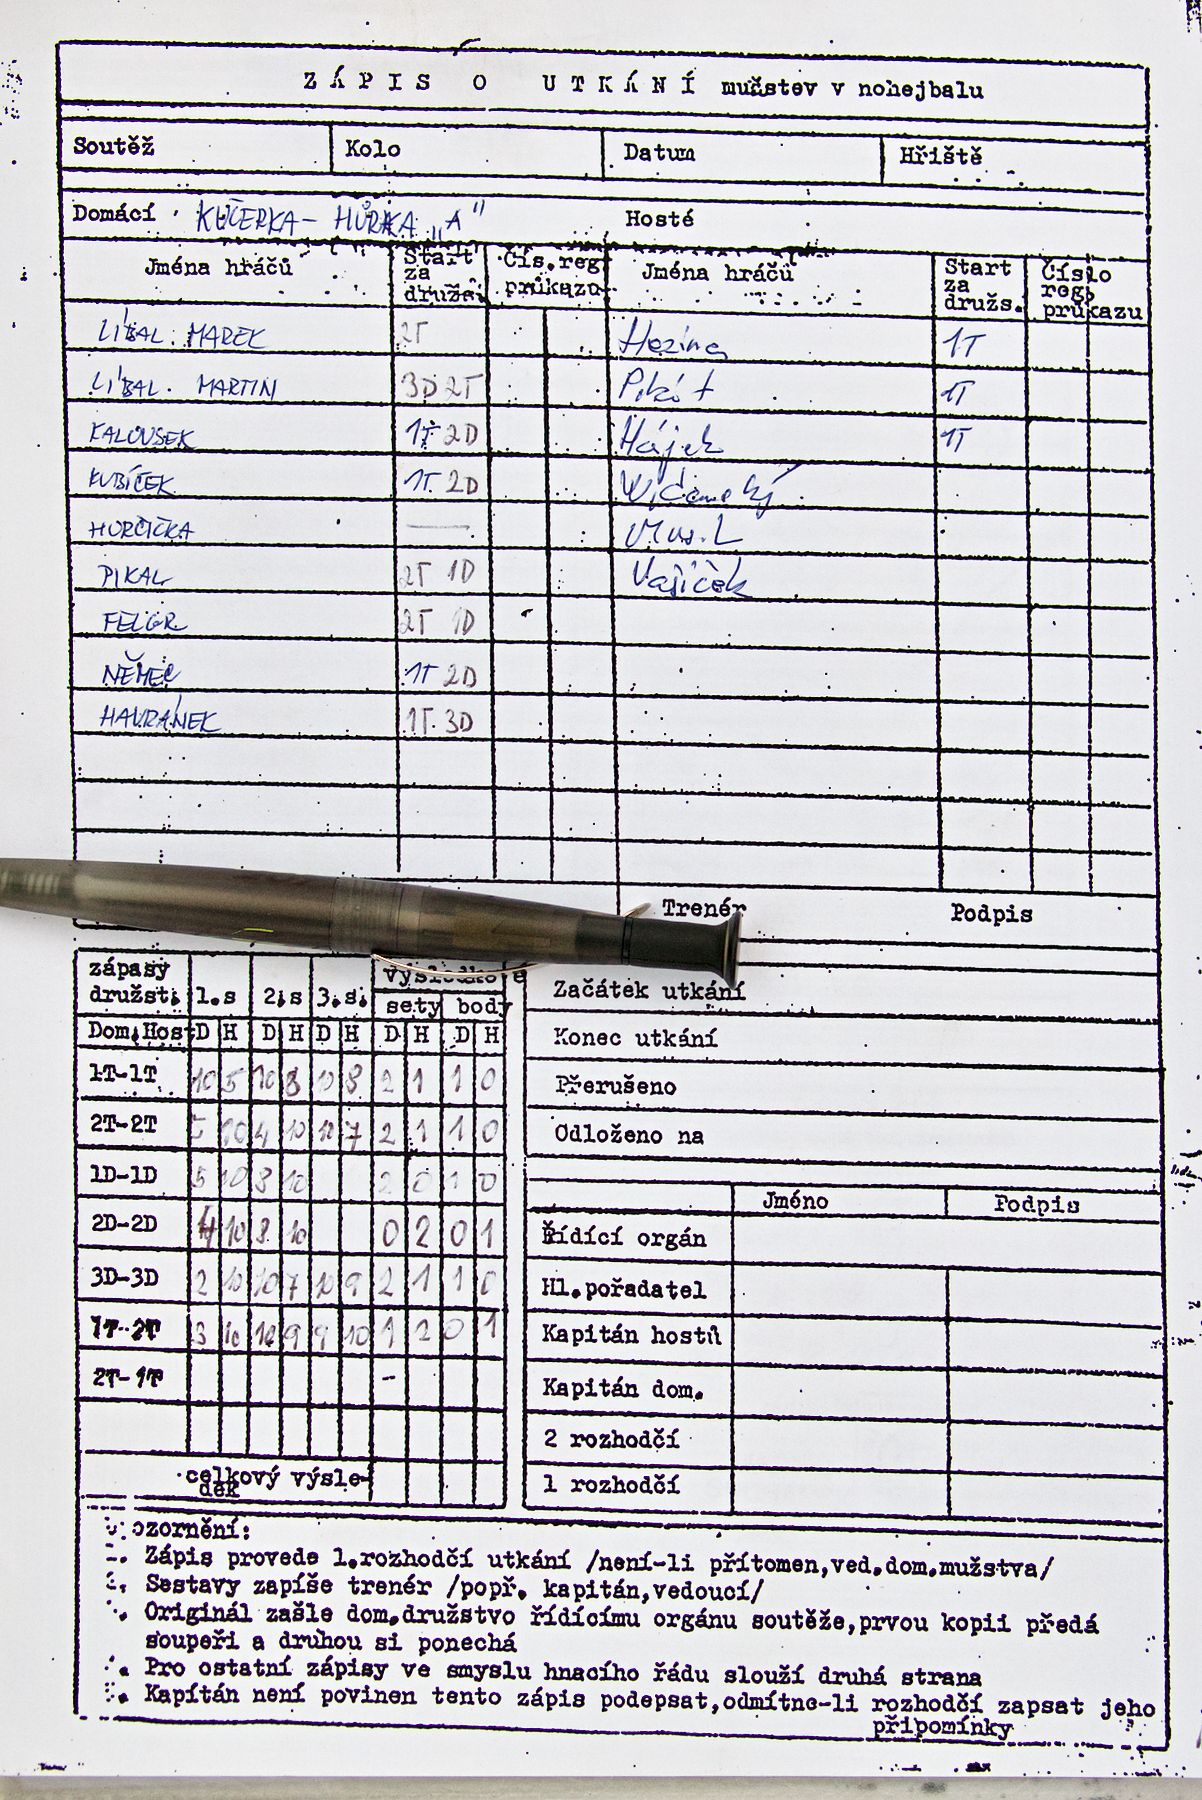 ZÁPIS O UTKÁNÍ mužstev v nohejbalu
Soutěž Kolo Datum Hřiště
Domácí KUČERKA - HŮRKA „A" Hosté
Jména hráčů Start za družs. Čís.reg průkazu Jména hráčů Start za družs. Číslo reg. průkazu
LÍBAL MAREK 2T 1T
LÍBAL. MARTIN 3D 2T 1T
KALOUSEK 1T 2D Hájek 1T
KUBÍČEK 1T 2D
HORČIČKA —
PIKAL 2T 1D Vašíček
FELGR 2T 1D
NĚMEC 1T 2D
HAVRÁNEK 1T 3D
Trenér Podpis
zápasy družst. 1.s 2.s 3.s. výsledkově
sety body
Dom.Host D H D H D H D H D H
1T-1T 10 5 10 8 10 8 2 1 1 0
2T-2T 5 10 4 10 10 7 2 1 1 0
1D-1D 5 10 8 10 2 0 1 0
2D-2D 4 10 8 10 0 2 0 1
3D-3D 2 10 10 7 10 9 2 1 1 0
1T-2T 3 10 9 9 10 1 2 0 1
2T-1T -
celkový výsledek
Začátek utkání
Konec utkání
Přerušeno
Odloženo na
Jméno Podpis
Řídící orgán
Hl.pořadatel
Kapitán hostů
Kapitán dom.
2 rozhodčí
1 rozhodčí
ozornění:
Zápis provede 1.rozhodčí utkání /není-li přítomen,ved.dom.mužstva/
Sestavy zapíše trenér /popř. kapitán,vedoucí/
Originál zašle dom.družstvo řídícímu orgánu soutěže,prvou kopii předá
soupeři a druhou si ponechá
Pro ostatní zápisy ve smyslu hnacího řádu slouží druhá strana
Kapitán není povinen tento zápis podepsat,odmítne-li rozhodčí zapsat jeho
připomínky